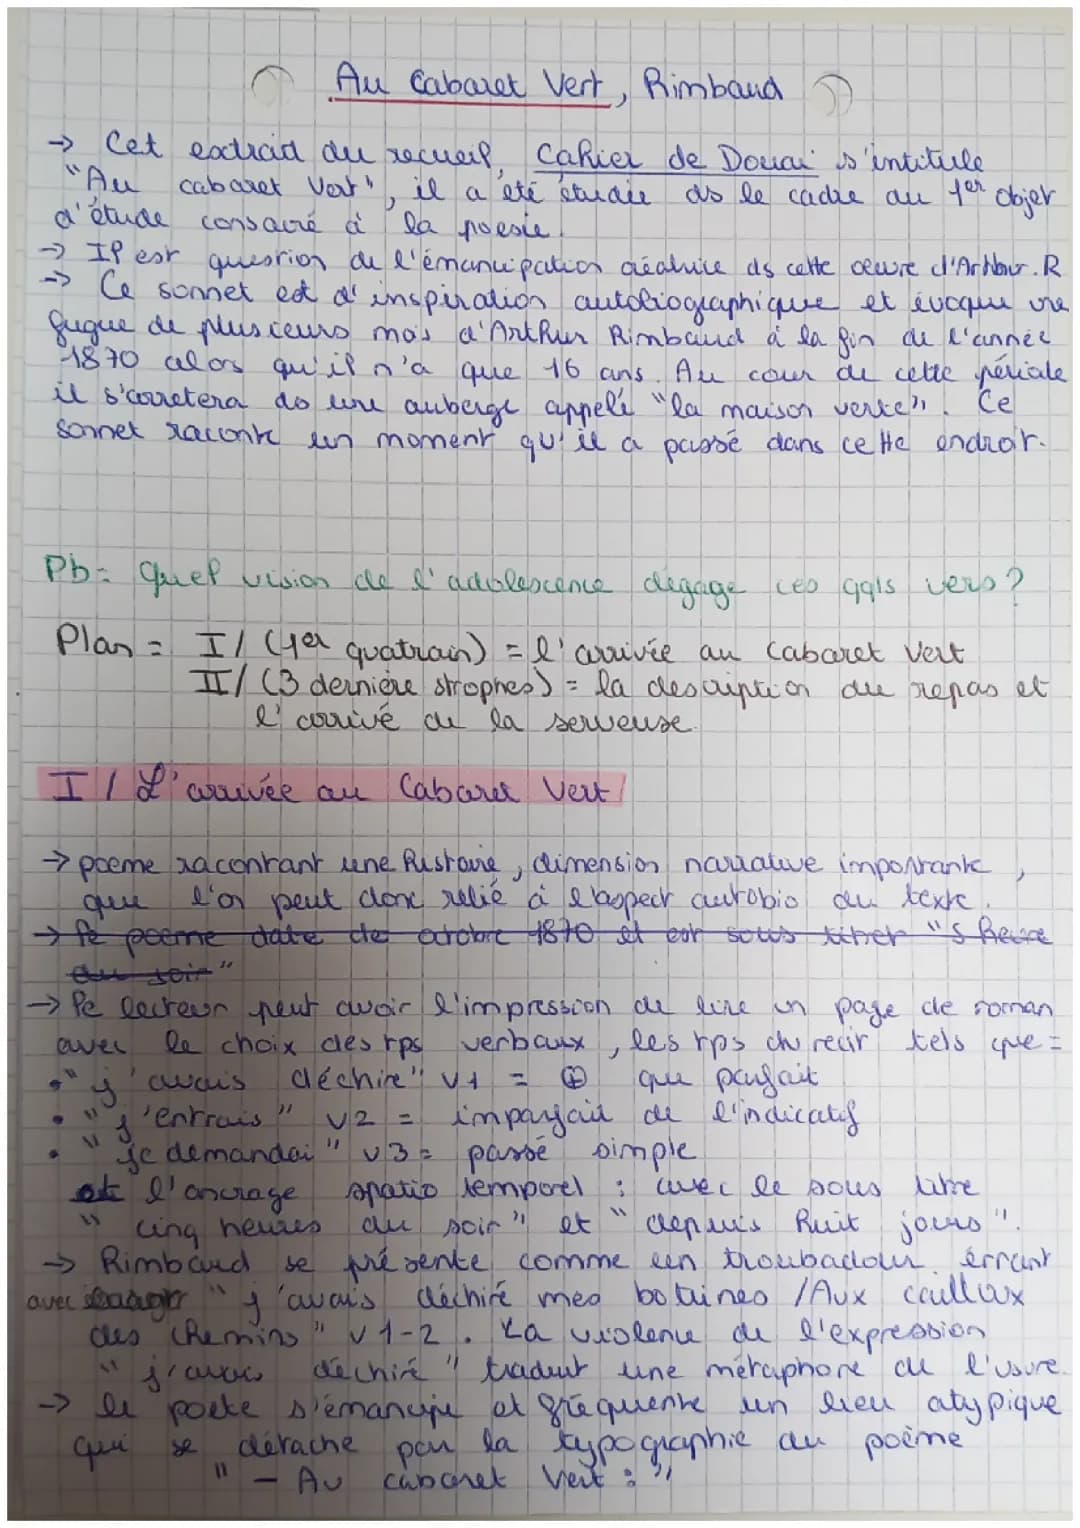 Au Cabaret Vert, Rimbaud
→ Cet extraid du recueil, Cahier de Douai s'intitule
"Au cabaret Vert", il a été étudié ds le cadre du 1er objet
d'étude consacré à la poésie.
→ Il est question de l'émancipation créatrice ds cette oeuvre d'Arthur. R
→ Ce sonnet est d'inspiration autobiographique et évoque une
fugue de plusieurs mois d'Arthur Rimbaud à la fin de l'année
1870 alors qu'il n'a que 16 ans. Au cour de cette période
il s'arretera ds une auberge appelé "la maison verte". Ce
sonnet raconte un moment qu'il a passé dans cette endroit.
Pb: Quel vision de l'adolescence dégage ces qqls vers?
Plan = I/ (1er quatrain) = l'arrivée au Cabaret Vert
II/ (3 dernière strophes) = la description du repas et
l'arrivé de la serveuse.
I/ L'arrivée au Cabaret Vert
→ poeme racontant une histoire, dimension narrative importante,
que l'on peut donc relié à l'aspect autobio du texte.
→ le poeme date de octobre 1870 et est sous titrer "5 heure
du soir"
→ le lecteur peut avoir l'impression de lire un page de roman
avec le choix des tps verbaux, les tps du récit tels que =
• "j'avais déchiré" v1 = ⊕ que parfait
• "j'entrais" v2 = imparfait de l'indicatif
• "je demandai" v3 = passé simple
et l'ancrage spatio temporel : avec le sous titre
"cinq heures du soir" et "depuis huit jours".
→ Rimbaud se présente comme un troubadour errant
avec "j'avais déchiré mes bottines /Aux cailloux
des chemins" v1-2. La violence de l'expression
"j'avais déchiré" traduit une métaphore de l'usure.
→ le poete s'émancipe et fréquente un lieu atypique
qui se détache par la typographie du poème
" - Au cabaret Vert : "